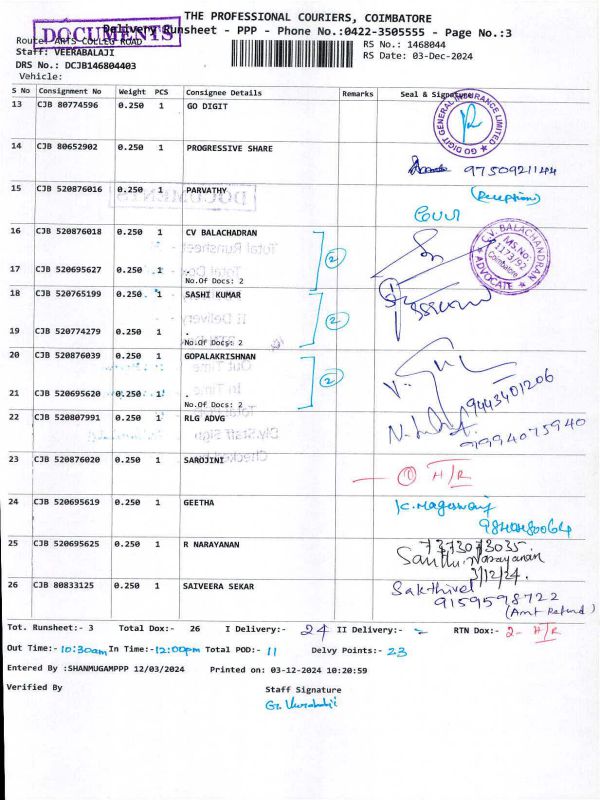 THE PROFESSIONAL COURIERS, COIMBATORE
DOCUMENTS
Delivery Runsheet - PPP - Phone No.:0422-3505555 - Page No.:3
Route: ARTS COLLEG ROAD
RS No.: 1468044
Staff: VEERABALAJI
RS Date: 03-Dec-2024
DRS No.: DCJB146804403
Vehicle:
S No Consignment No Weight PCS Consignee Details Remarks Seal & Signature
13 CJB 80774596 0.250 1 GO DIGIT
GO DIGIT GENERAL INSURANCE LIMITED
14 CJB 80652902 0.250 1 PROGRESSIVE SHARE
9750921144
15 CJB 520876016 0.250 1 PARVATHY (Reception)
DOCUMENTS
16 CJB 520876018 0.250 1 CV BALACHADRAN
C.V. BALACHANDRAN
MS.No:
1173/92
Coimbatore
ADVOCATE
Total Runsheet
2
17 CJB 520695627 0.250 1 .
No.Of Docs: 2
18 CJB 520765199 0.250 1 SASHI KUMAR
2
II Delivery
19 CJB 520774279 0.250 1 .
No.Of Docs: 2
20 CJB 520876039 0.250 1 GOPALAKRISHNAN
Out Time
2
In Time
21 CJB 520695620 0.250 1 .
No.Of Docs: 2
9443401206
22 CJB 520807991 0.250 1 RLG ADVG
9994075940
Dlv.Staff Sign
23 CJB 520876020 0.250 1 SAROJINI 1 H/R
24 CJB 520695619 0.250 1 GEETHA K. Mageswary
25 CJB 520695625 0.250 1 R NARAYANAN 7373073035.
Narayanan
3/12/24.
26 CJB 80833125 0.250 1 SAIVEERA SEKAR Sakthivel
9159598722
(Amt Refund)
Tot. Runsheet:- 3 Total Dox:- 26 I Delivery:- 24 II Delivery:- - RTN Dox:- 2- H/R
Out Time:- 10:30am In Time:- 12:00pm Total POD:- 11 Delvy Points:- 23
Entered By :SHANMUGAMPPP 12/03/2024 Printed on: 03-12-2024 10:20:59
Verified By Staff Signature